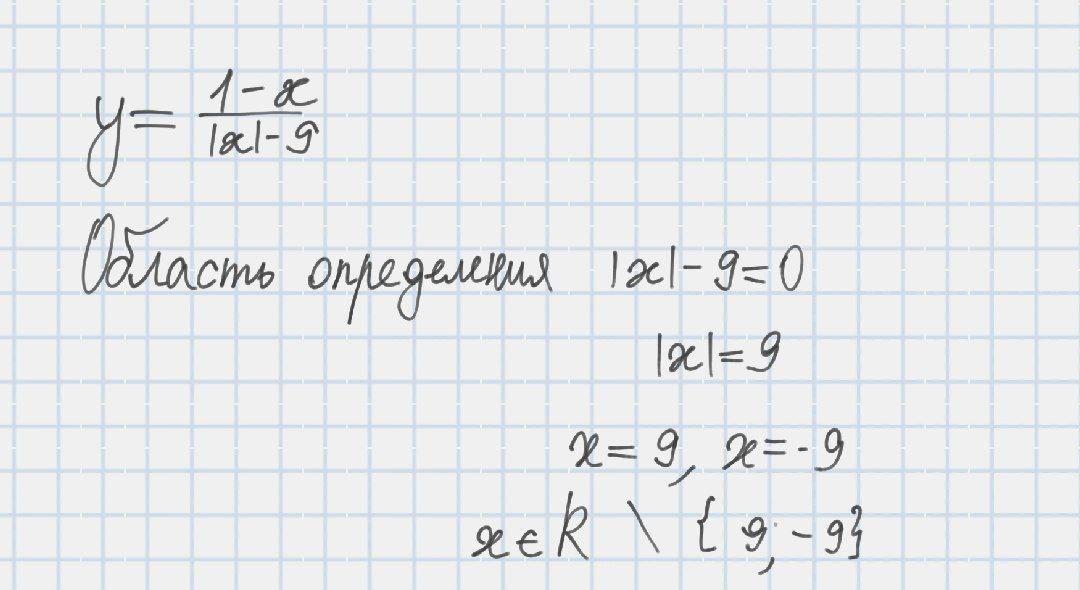 y = (1 - x) / (|x| - 9)
Область определения |x| - 9 = 0
|x| = 9
x = 9, x = -9
x ∈ R \ { 9, -9}